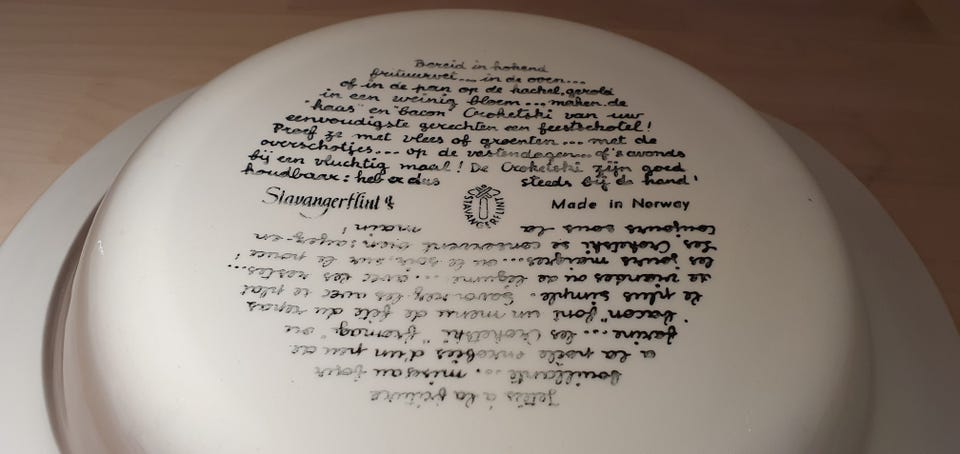 Bereid in kokend
frituurvet... in de oven...
of in de pan op de kachel, gerold
in een weinig bloem... maken de
"kaas" en "bacon" Croketski van uw
eenvoudigste gerechten een feestschotel!
Proef ze met vlees of groenten... met de
overschotjes... op de vastendagen... of 's avonds
bij een vluchtig maal! De Croketski zijn goed
houdbaar: heb er dus steeds bij de hand!
Stavangerflint A/S
STAVANGERFLINT
Made in Norway
Jetés à la friture
bouillante... mises au four
à la poêle enrobées d'un peu de
farine.... les Croketski "fromag" ou
"bacon" font un menu de fête du repas
le plus simple. Savourez les avec le plat
de viandes ou de légume... avec les restes...
les jours maigres... ou le soir sur le pouce!
Les Croketski se conservent bien: ayez-en
toujours sous la main!